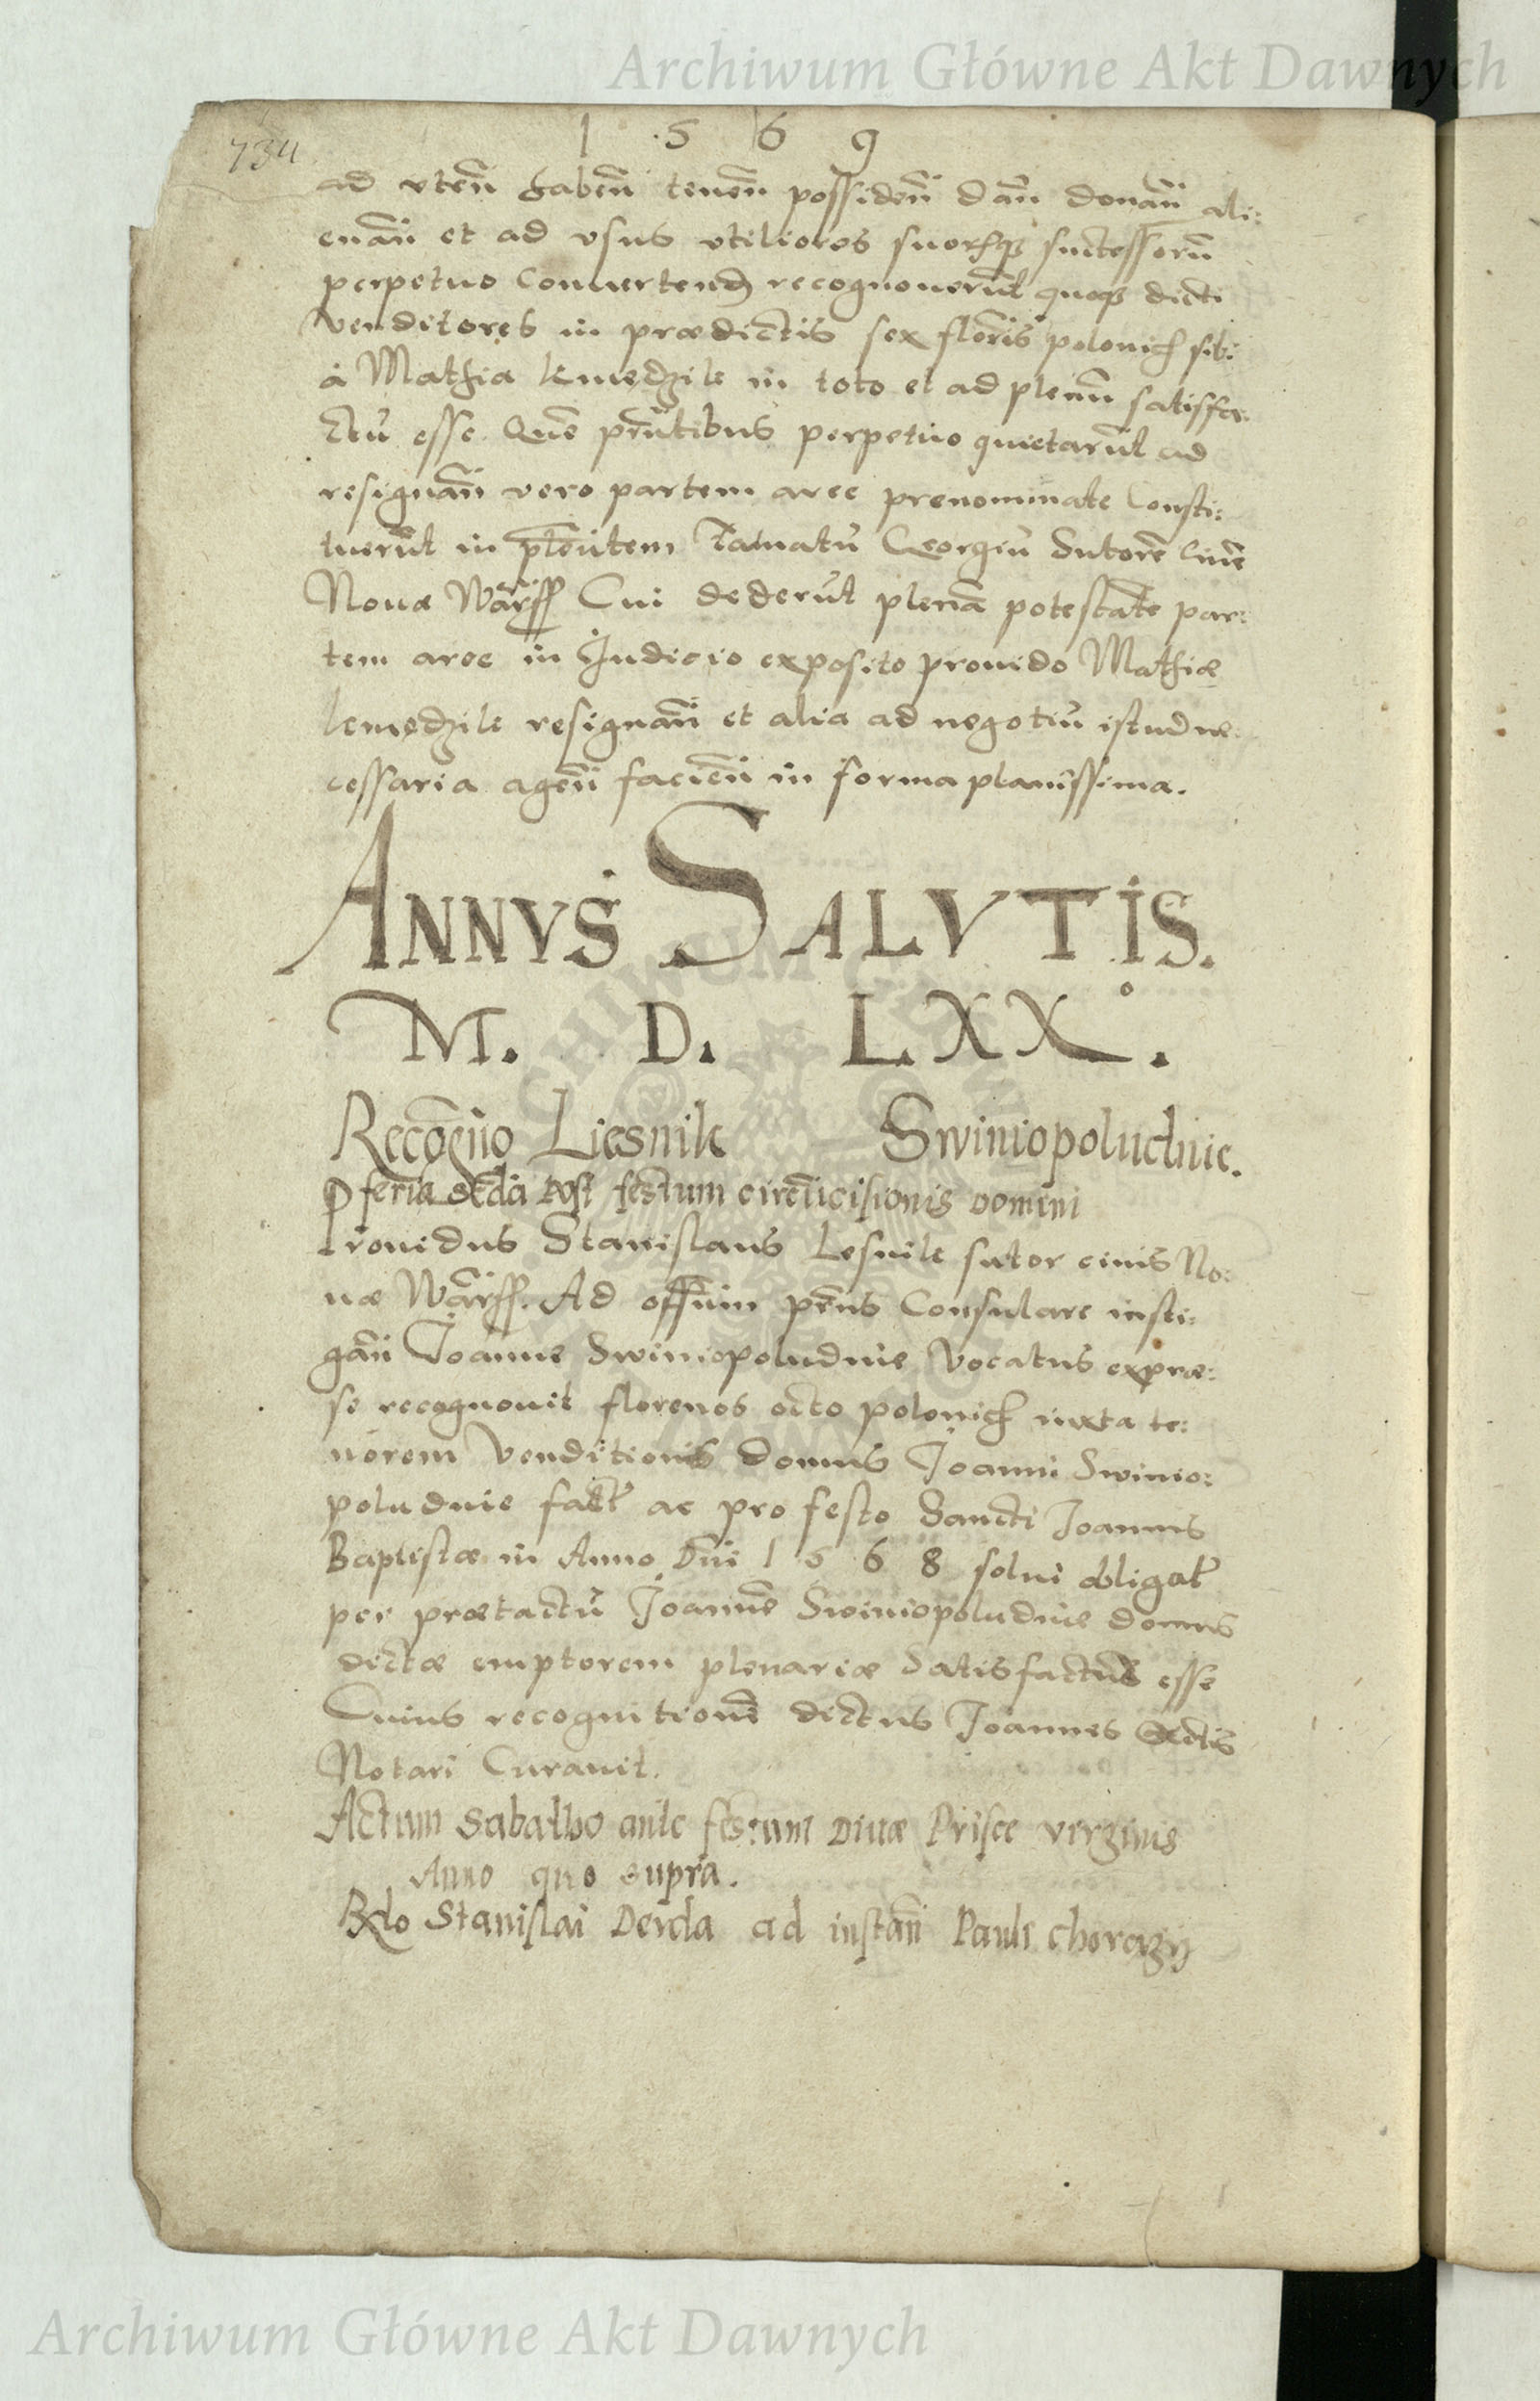 Archiwum Główne Akt Dawnych
734
1 5 6 9
ad vten̄ haben̄ tenen̄ possiden̄ dan̄ donan̄ ali:
enan̄ et ad vsus vtiliores suorūq̨ successorū
perpetuo Conuertend recognouerūt quoq̨ dicti
venditores in prædictis sex floris polonich sibi
à Mathia kmędzik in toto et ad plenū satisfa:
ctū esse Quē prn̄tibus perpetuo quietarūt ad
resignan̄ vero partem aree prenominate Consti:
tuerūt in pleūtem Famatū Georgiū Sutorē Ciuē
Nouæ Warss Cui dederūt plenā potestatē par:
tem aree in Iudicio exposito prouido Mathiæ
kmędzik resignan̄ et alia ad negotiū istud ne
cessaria agen̄ facien̄ in forma planissima.
ANNVS SALVTIS.
M. D. LXX°.
Recogn̄io Liesnik Swiniopoludnie.
feria scd̄a post festum circūcisionis Domini
Prouidus Stanislaus Lesnik sutor ciuis No:
uæ Warss. Ad offīum pn̄s Consulare insti:
gan̄ Joanne Swiniopoludnie Vocatus expræ:
se recognouit florenos octo polonich iuxta te:
norem Venditionis domus Joanni Swinio:
poludnie fact̄ ac pro festo Sancti Joannis
Baptistæ in Anno Dn̄i 1 5 6 8 solui obligat̄
per prætactū Joannē Swiniopoludnie domus
dictæ emptorem plenariæ Satisfactus esse
Cuius recognitionē dictus Joannes Actis
Notari Curauit.
Actum Sabatho ante festum Diuæ Prisce virginis
Anno quo supra.
Rdo Stanislai Derda ad instan̄ Pauli chorazy
Archiwum Główne Akt Dawnych